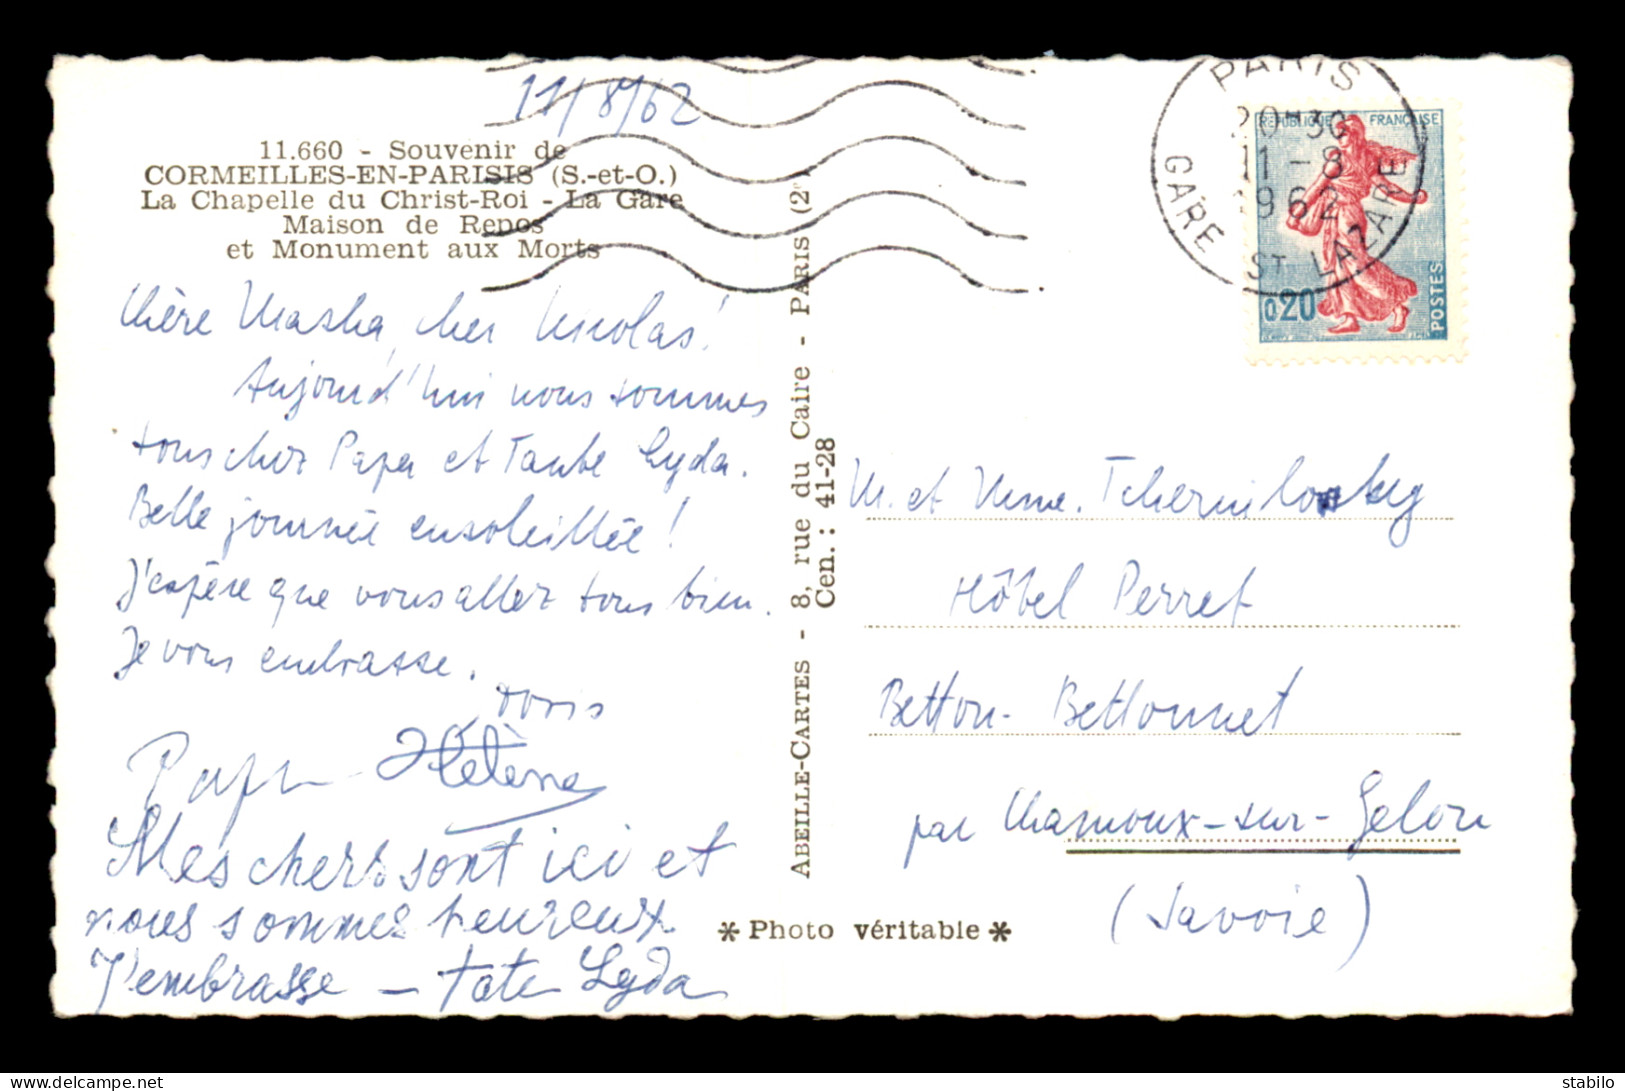 11/8/62
11.660 - Souvenir de
CORMEILLES-EN-PARISIS (S.-et-O.)
La Chapelle du Christ-Roi - La Gare
Maison de Repos
et Monument aux Morts
Chère Masha, cher Nicolas!
Aujourd'hui nous sommes
tous chez Papa et Tante Lyda.
Belle journée ensoleillée!
J'espère que vous allez tous bien.
Je vous embrasse.
Hélène
Mes chers sont ici et
nous sommes heureux
J'embrasse – tate Lyda
ABEILLE-CARTES - 8, rue du Caire - PARIS (2
Cen. : 41-28
* Photo véritable *
PARIS
20H30
11-8
1962
GARE ST LAZARE
REPUBLIQUE FRANÇAISE
0,20
POSTES
M. et Mme.
Hôtel Perret
Betton-Bettonnet
par Chamoux-sur-Gelon
(Savoie)
stabilo